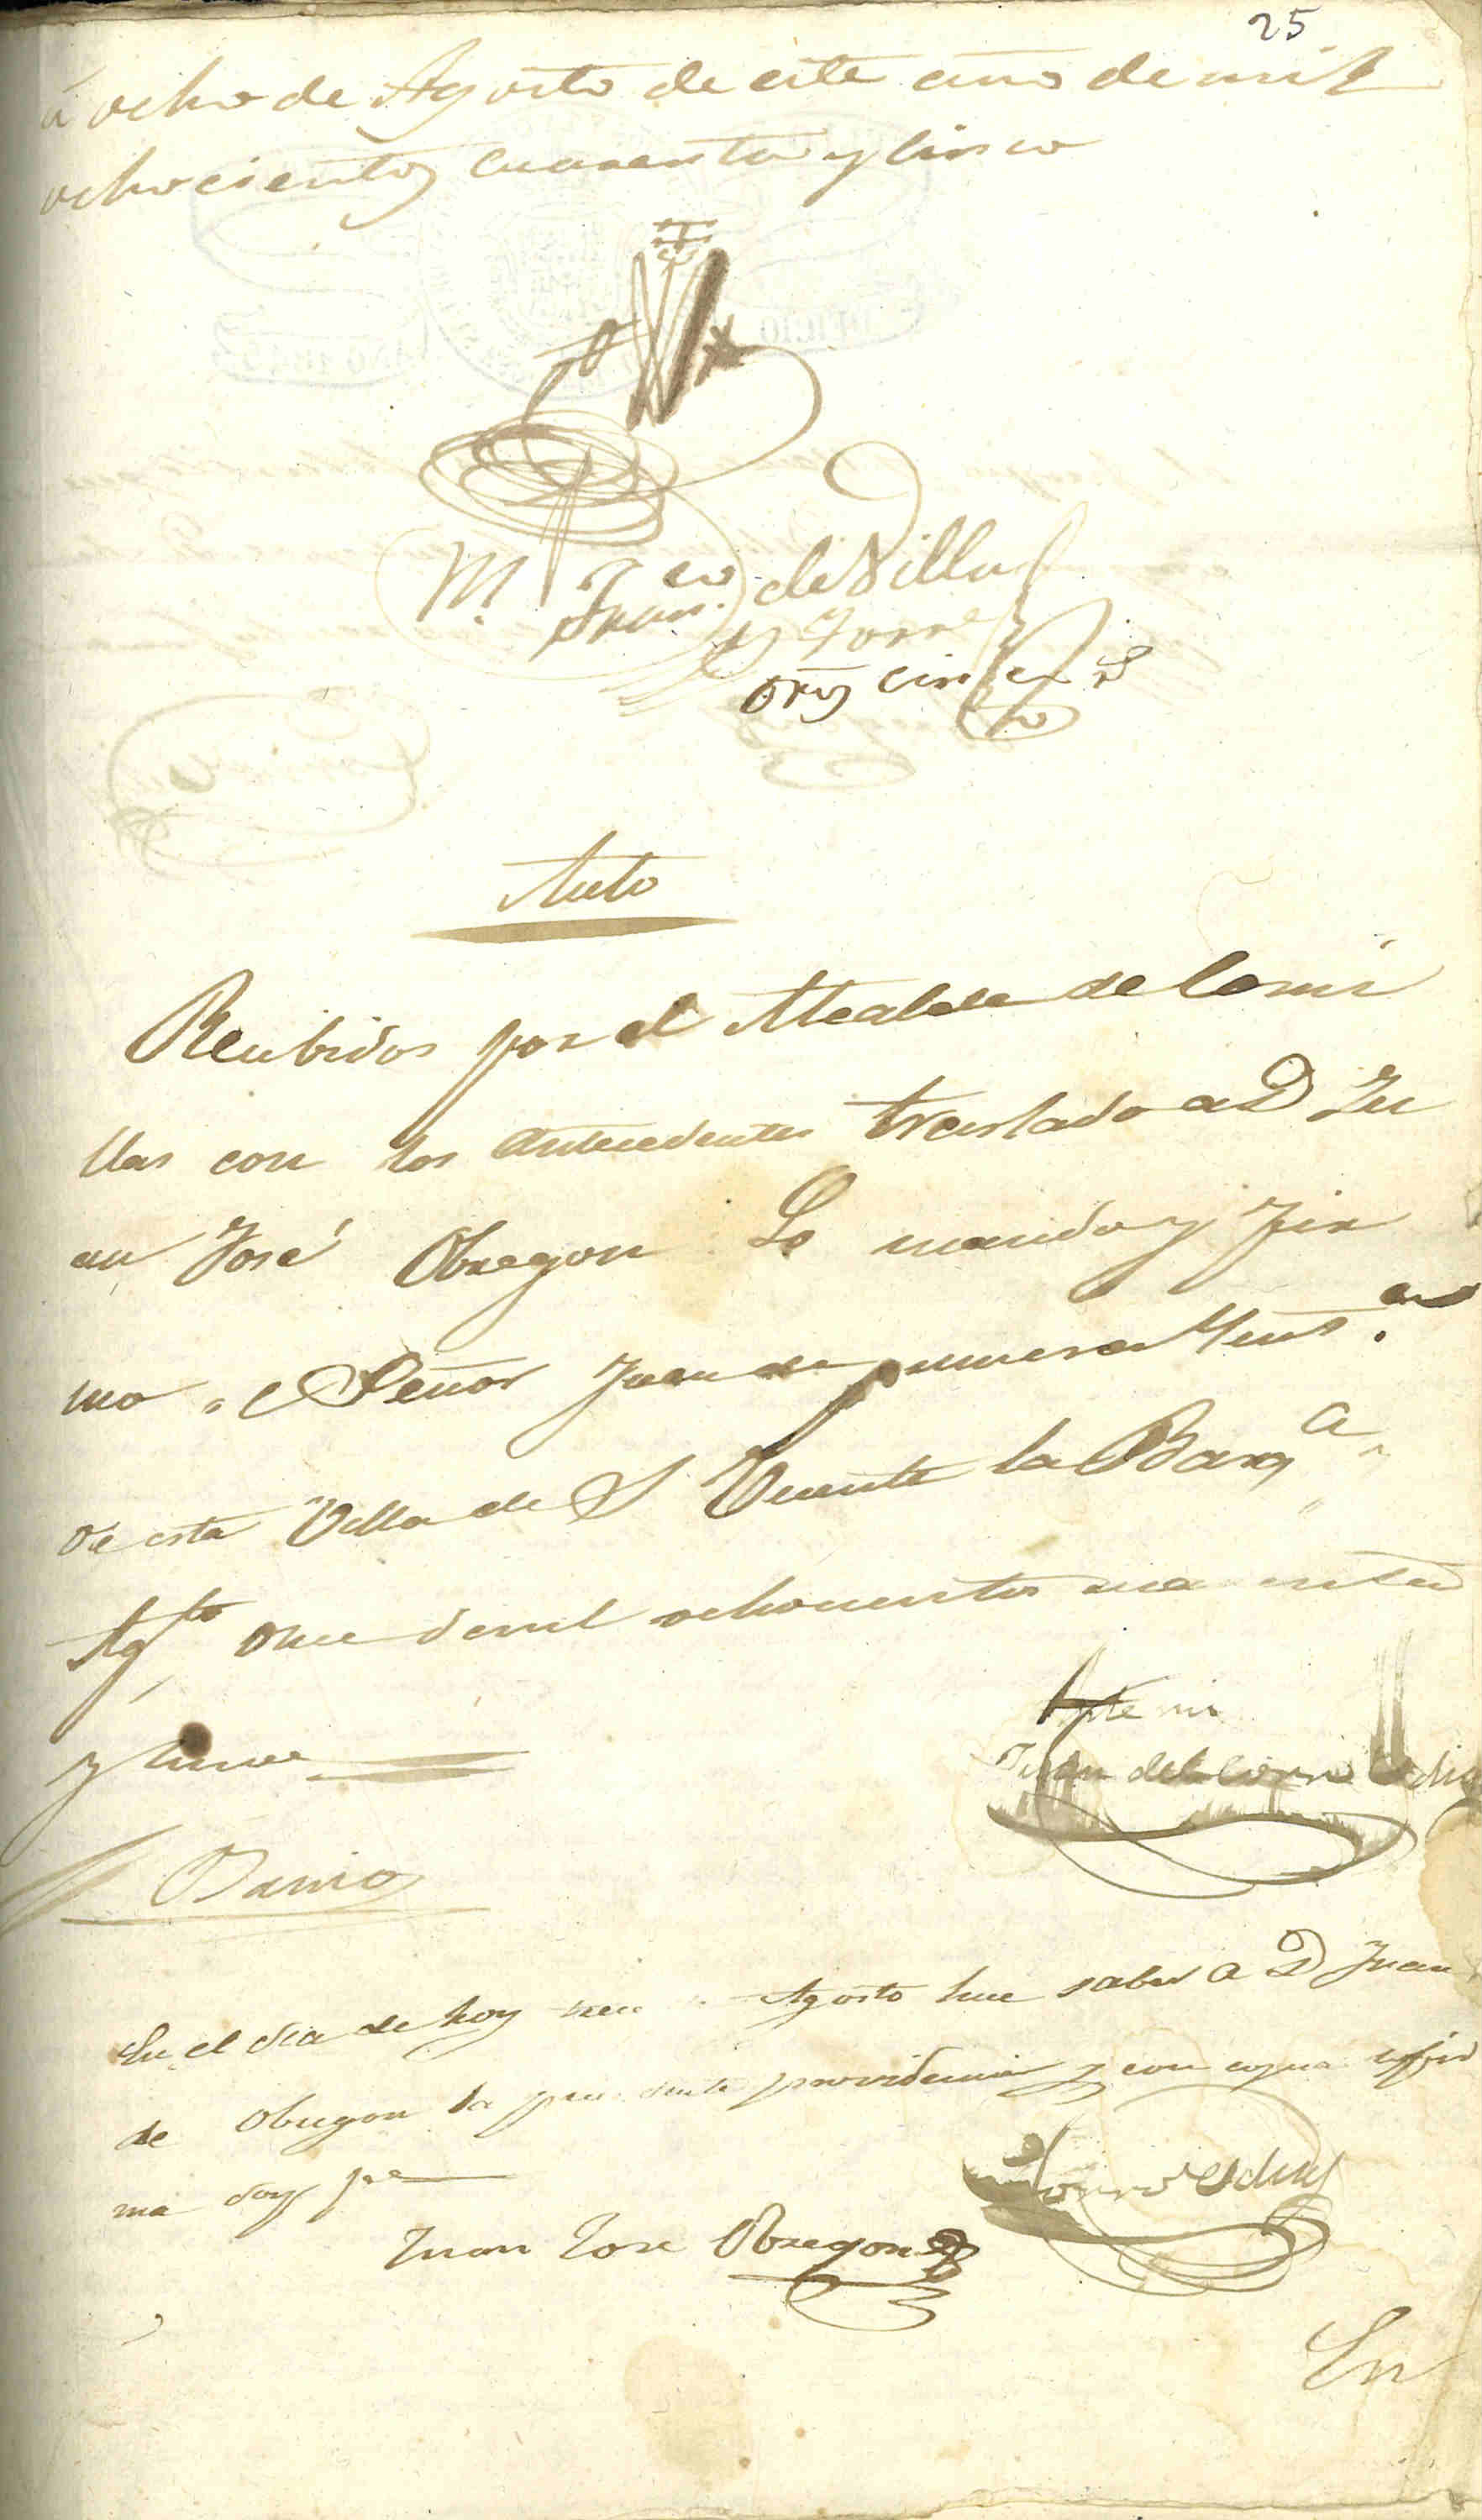 25
á ocho de Agosto de este año de mil
ochocientos cuarenta y cinco
M. Franco. de Villa
y Torre
Auto
Recibidos por el Alcalde de Comi
llas con los antecedentes traslado a D Ju
an José Obregon Lo mando y fir
mo el Señor Juez de primera Ynst.a
de esta Villa de S Vicente la Barq.a
Agto once de mil ochocientos cuarenta
y cinco
Ante mi
Juan del Corro
Barrio
En el dia de hoy Agosto hice saber a D Juan
de Obregon la precedente providencia y con copia y fir
ma doy fe
Corro
Juan Jose Obregon
En